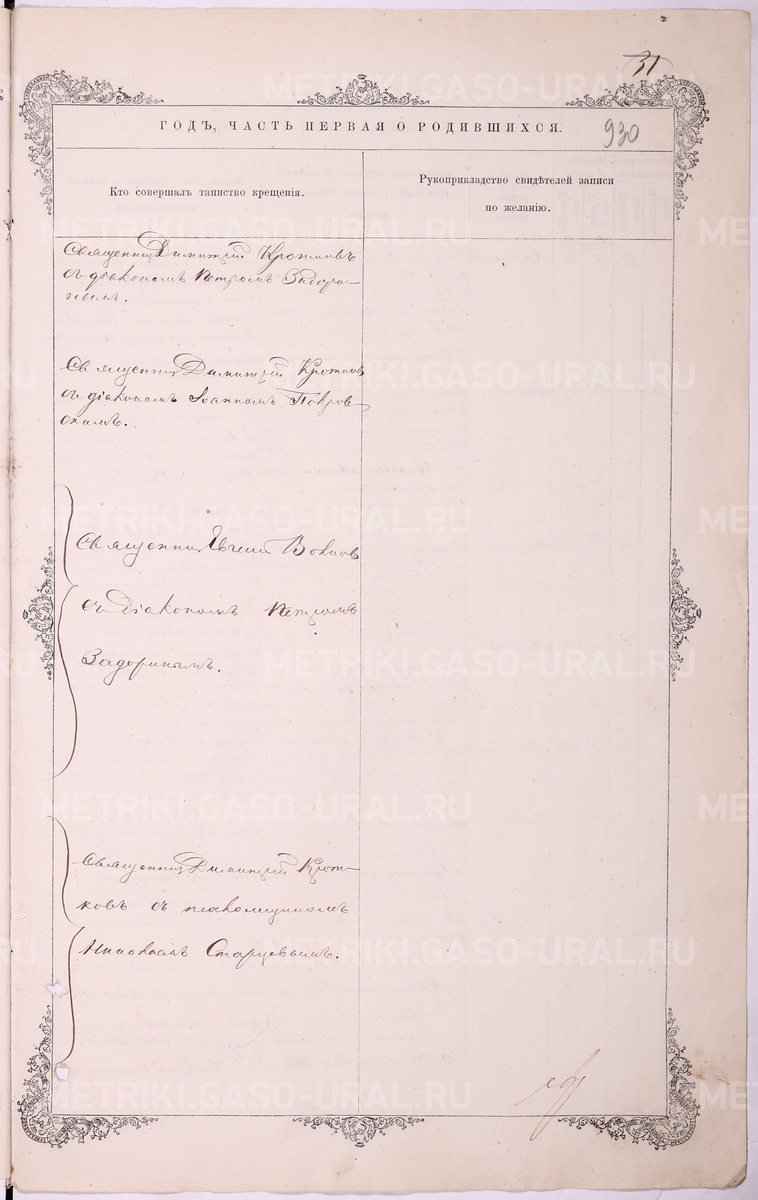 31
ГОДЪ, ЧАСТЬ ПЕРВАЯ О РОДИВШИХСЯ.
930
Кто совершалъ таинство крещенія.
Рукоприкладство свидѣтелей записи
по желанію.
Священникъ Димитрій Кротковъ
съ діакономъ Петромъ Задори-
нымъ.
Священникъ Димитрій Кротковъ
съ діакономъ Іоанномъ Покров-
скимъ.
Священникъ Волковъ
съ діакономъ Петромъ
Задоринымъ.
Священникъ Димитрій Крот-
ковъ съ псаломщикомъ
Николаемъ Старцевымъ.
METRIKI.GASO-URAL.RU